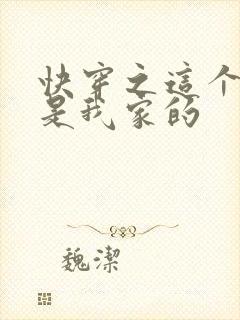 快穿之這个
是我家的
魏潔